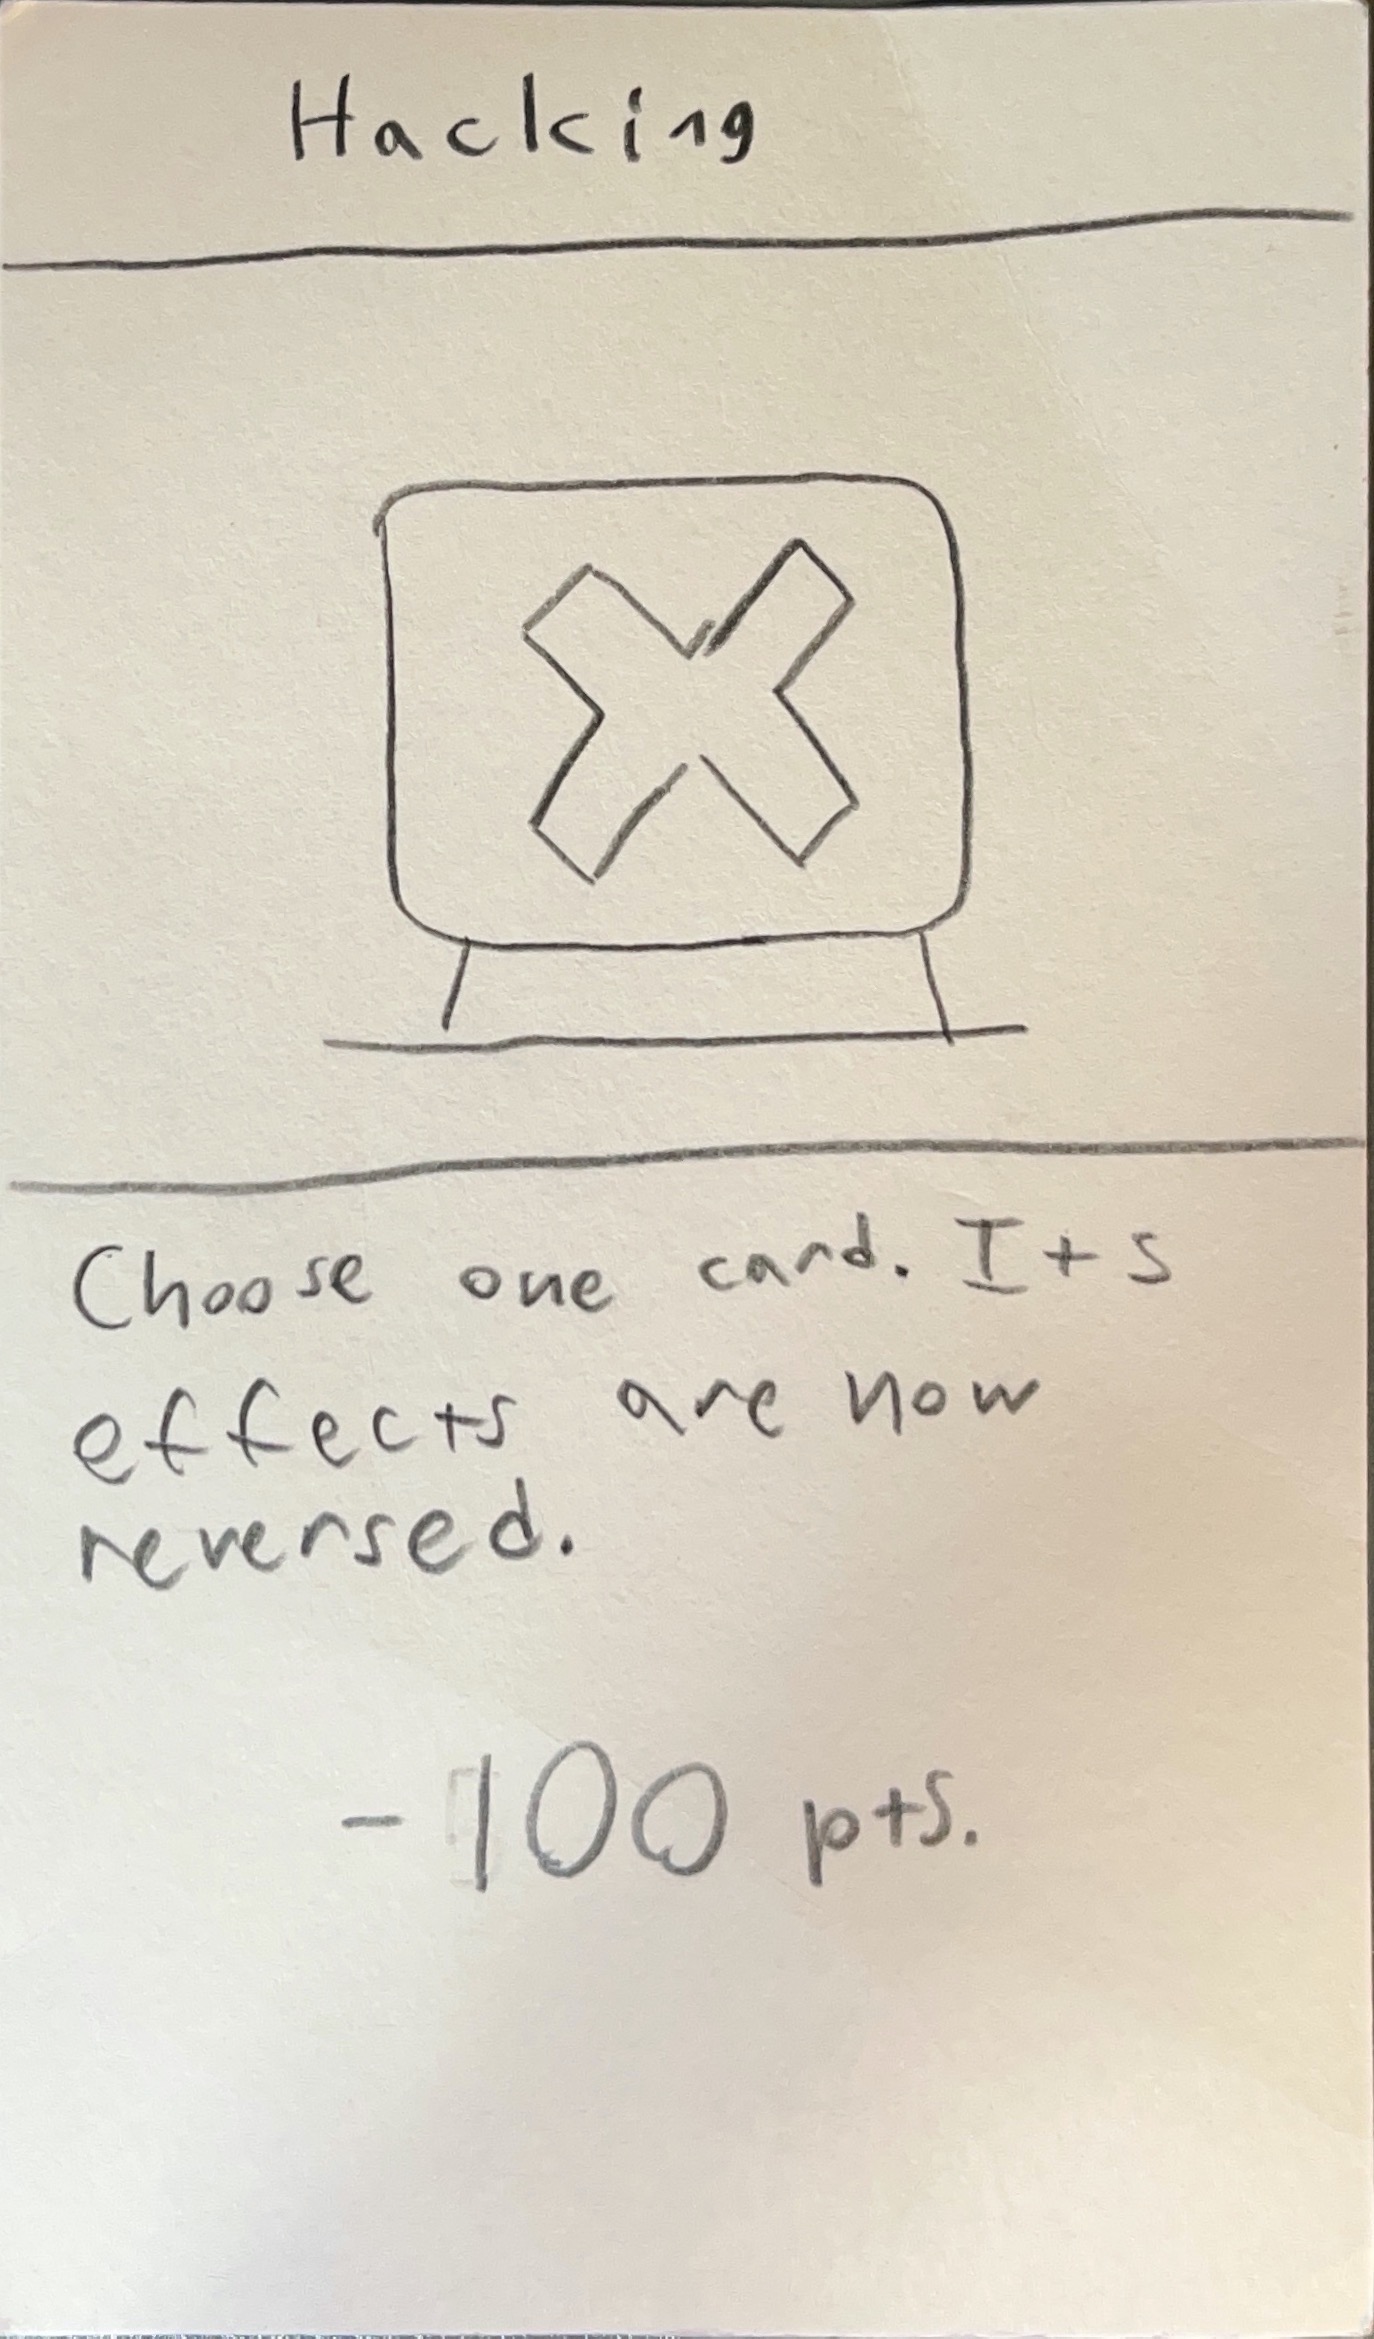 Hacking
Choose one card. Its
effects are now
reversed.
-100 pts.